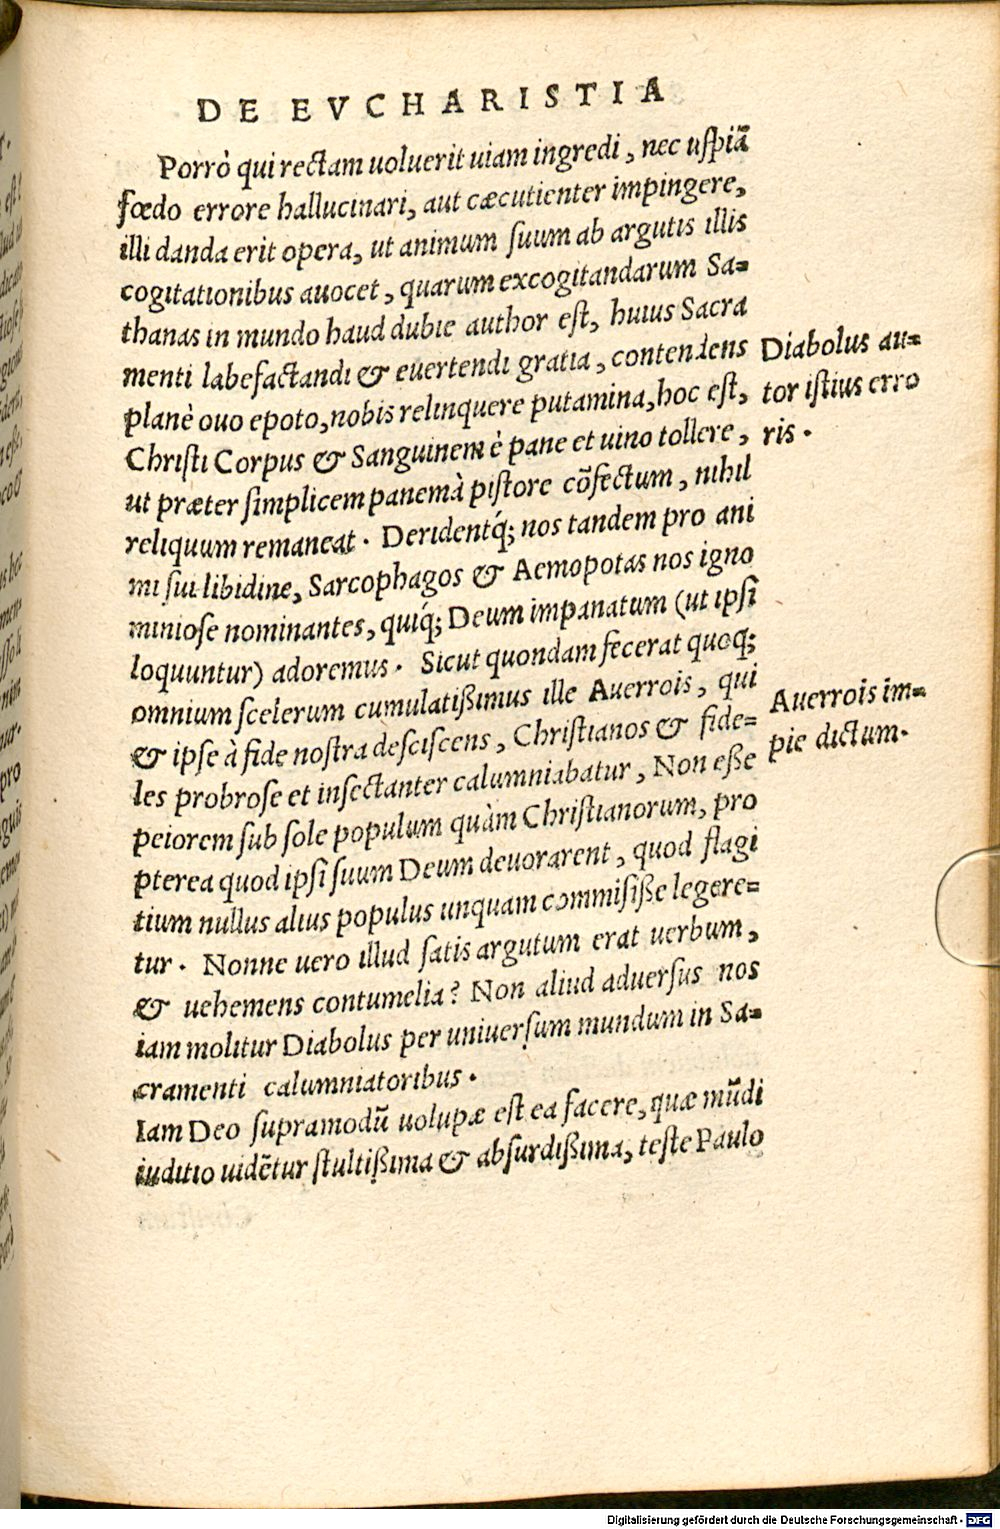 DE EVCHARISTIA
Porrò qui rectam uoluerit uiam ingredi, nec uspiã
fœdo errore hallucinari, aut cæcutienter impingere,
illi danda erit opera, ut animum suum ab argutis illis
cogitationibus auocet, quarum excogitandarum Sa=
thanas in mundo haud dubie author est, huius Sacra
menti labefactandi & euertendi gratia, contendens
planè ouo epoto, nobis relinquere putamina, hoc est,
Christi Corpus & Sanguinem è pane et uino tollere,
ut præter simplicem panem à pistore cõfectum, nihil
reliquum remaneat. Derident´q; nos tandem pro ani
mi sui libidine, Sarcophagos & Aemopotas nos igno
miniose nominantes, qui´q; Deum impanatum (ut ipsi
loquuntur) adoremus. Sicut quondam fecerat quoq;
omnium scelerum cumulatißimus ille Auerrois, qui
& ipse à fide nostra desciscens, Christianos & fide=
les probrose et insectanter calumniabatur, Non eße
peiorem sub sole populum quàm Christianorum, pro
pterea quod ipsi suum Deum deuorarent, quod flagi
tium nullus alius populus unquam commisiße legere=
tur. Nonne uero illud satis argutum erat uerbum,
& uehemens contumelia? Non aliud aduersus nos
iam molitur Diabolus per uniuersum mundum in Sa=
cramenti calumniatoribus.
Iam Deo supramodũ uolupæ est ea facere, quæ mũdi
iuditio uidẽtur stultißima & absurdißima, teste Paulo
Diabolus au=
tor istius erro
ris.
Auerrois im=
pie dictum.
Digitalisierung gefördert durch die Deutsche Forschungsgemeinschaft - DFG